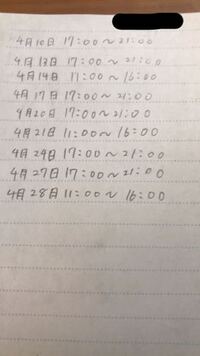 4月10日 17:00〜21:00
4月13日 17:00〜21:00
4月14日 11:00〜16:00
4月17日 17:00〜21:00
4月20日 17:00〜21:00
4月21日 11:00〜16:00
4月24日 17:00〜21:00
4月27日 17:00〜21:00
4月28日 11:00〜16:00